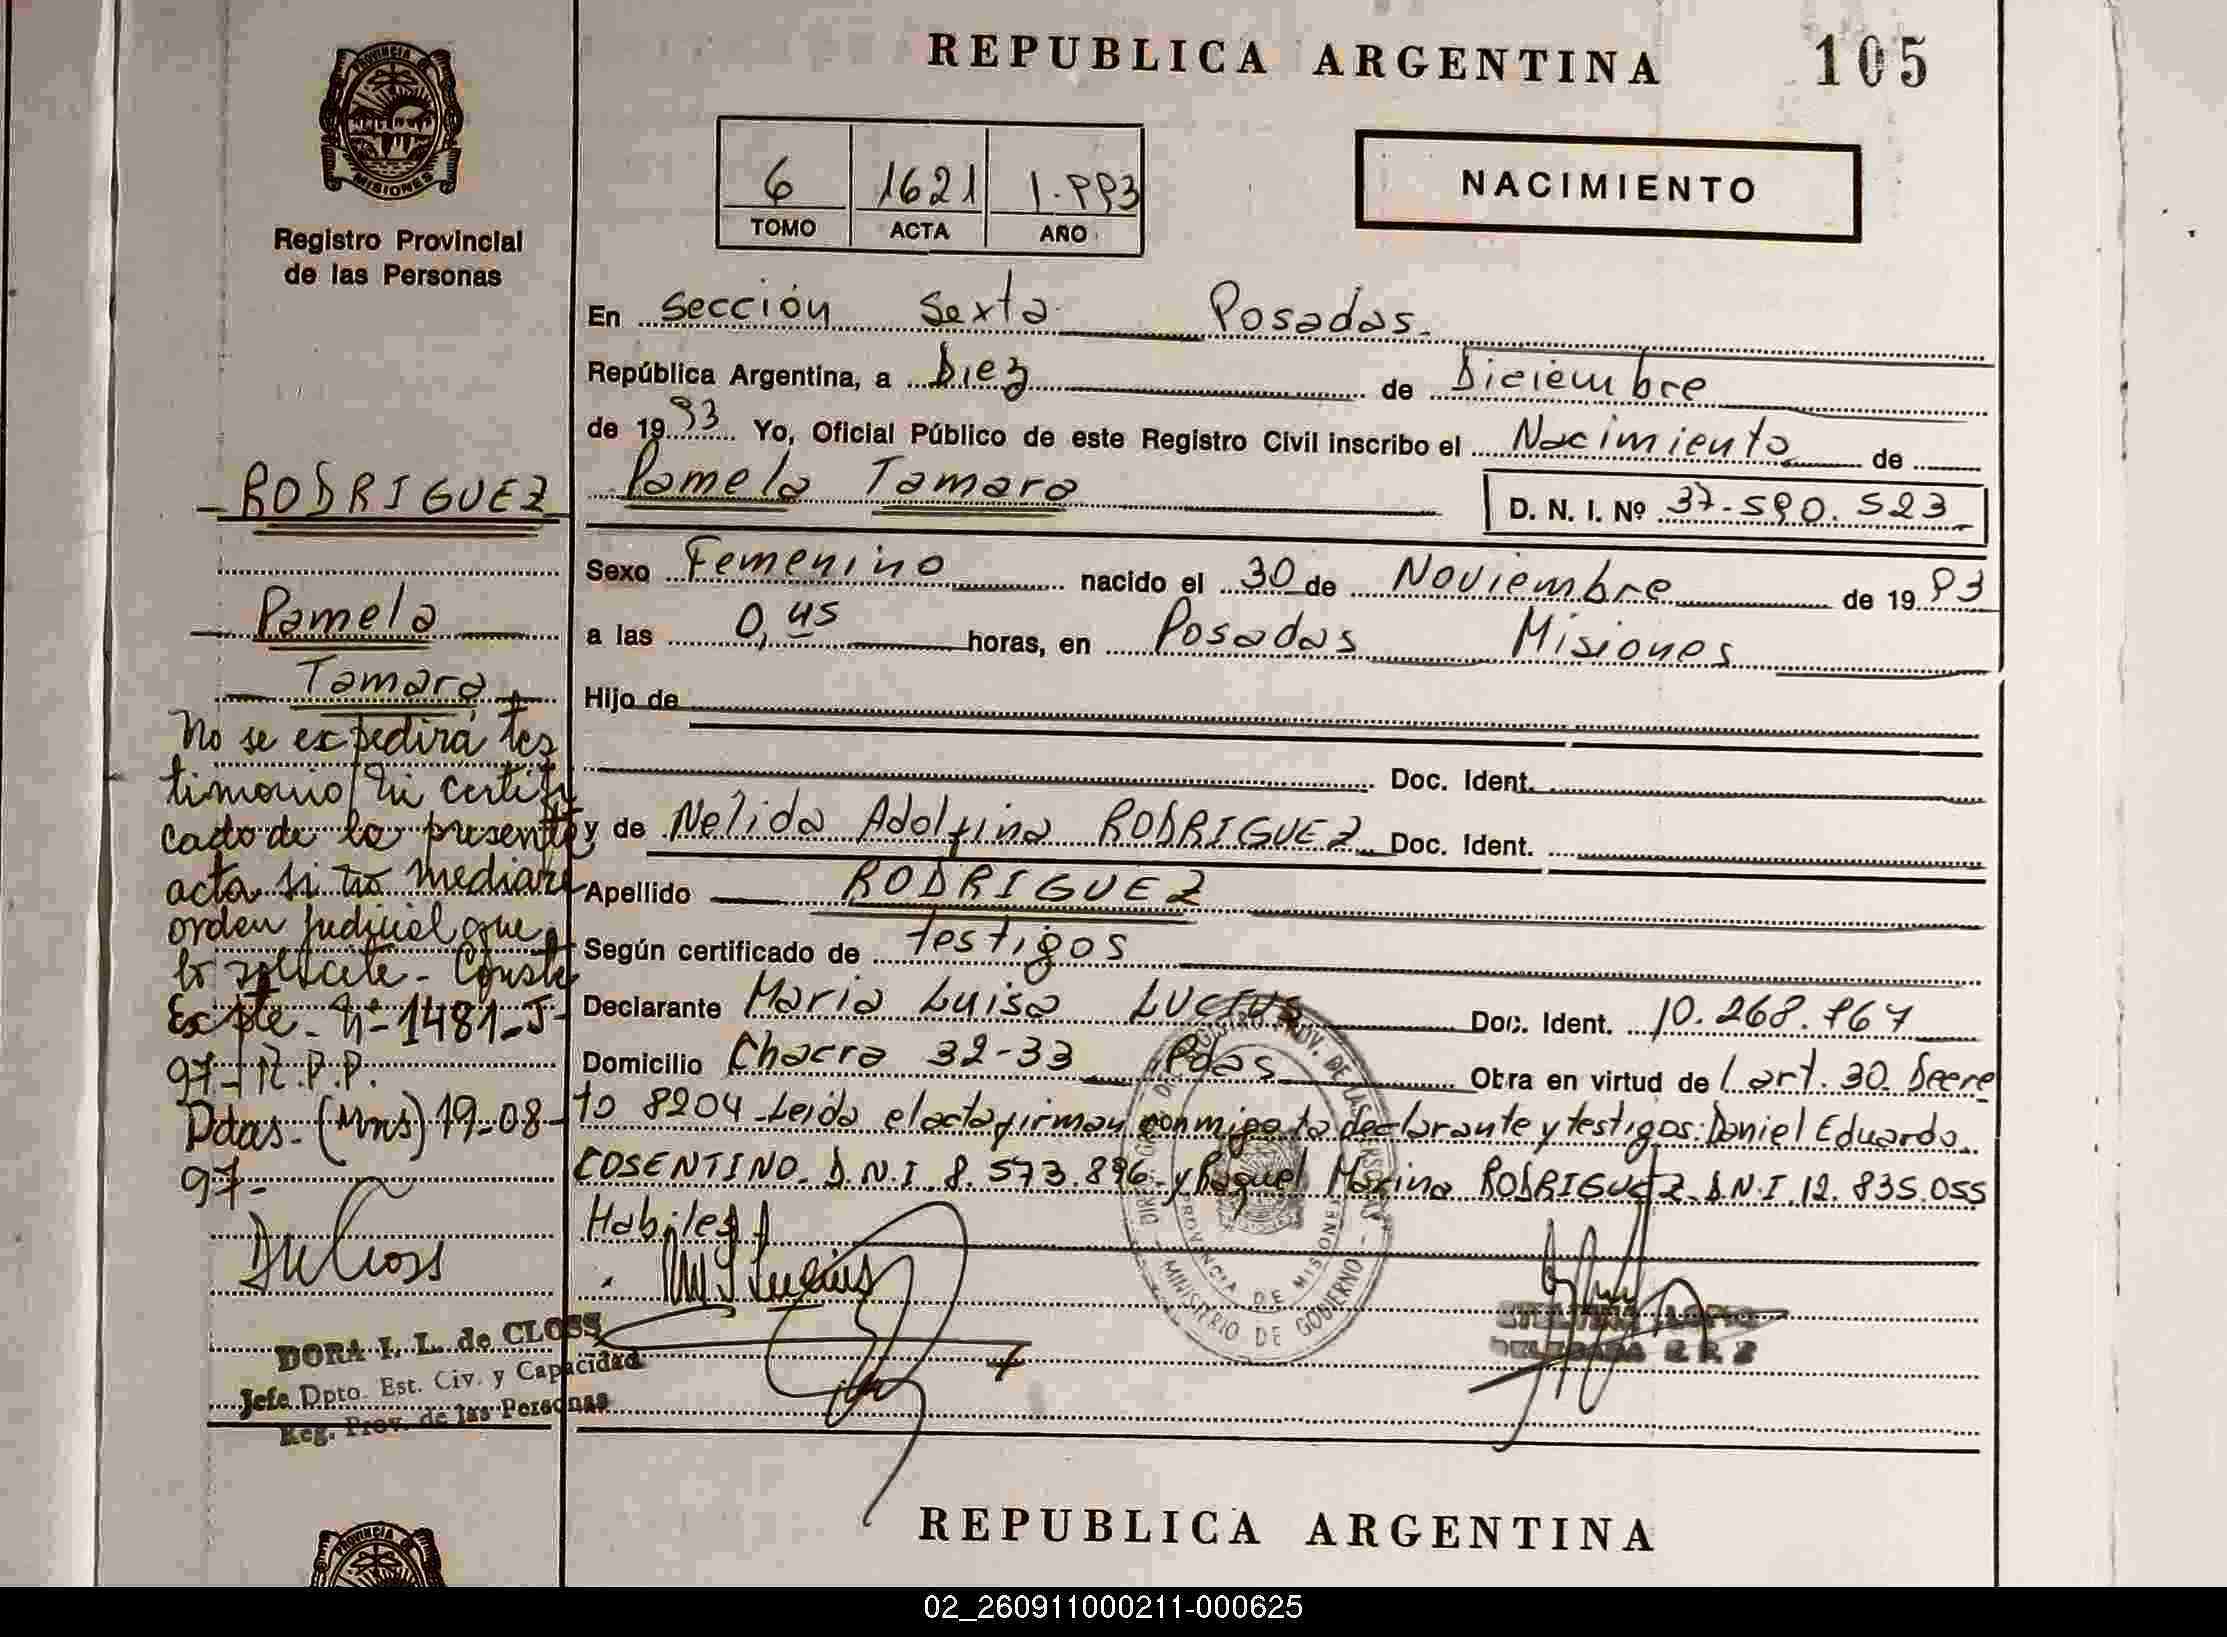 REPUBLICA ARGENTINA 105
PROVINCIA DE
MISIONES
Registro Provincial
de las Personas
6 1621 1.993
TOMO ACTA AÑO
NACIMIENTO
En Sección Sexta Posadas.
República Argentina, a Diez de Diciembre
de 1993 Yo, Oficial Público de este Registro Civil inscribo el Nacimiento de
Pamela Tamara D. N. I. Nº 37.590.523
Sexo Femenino nacido el 30 de Noviembre de 1993
a las 0,45 horas, en Posadas Misiones
Hijo de
Doc. Ident.
y de Nelida Adolfina RODRIGUEZ Doc. Ident.
Apellido RODRIGUEZ
Según certificado de testigos
Declarante Maria Luisa LUCIUS Doc. Ident. 10.268.967
Domicilio Chacra 32-33 Pdas Obra en virtud del art. 30 Decre
to 8204-Leida el acta firman conmigo la declarante y testigos: Daniel Eduardo
COSENTINO. D.N.I. 8.573.896 y Raquel Marina RODRIGUEZ D.N.I. 12.835.055
Habiles
RODRIGUEZ
Pamela
Tamara
No se expedirá tes
timonio ni certifi
cado de la presente
acta si no mediare
orden judicial que
lo solicite - Conste
Expte. Nº 1481-J-
97-R.P.P.
Pdas. (Mns) 19-08-
97-
DORA I. L. de CLOSS
Jefe Dpto. Est. Civ. y Capacidad
Reg. Prov. de las Personas
PROVINCIA DE MISIONES
MINISTERIO DE GOBIERNO
REPUBLICA ARGENTINA
PROVINCIA
02_260911000211-000625